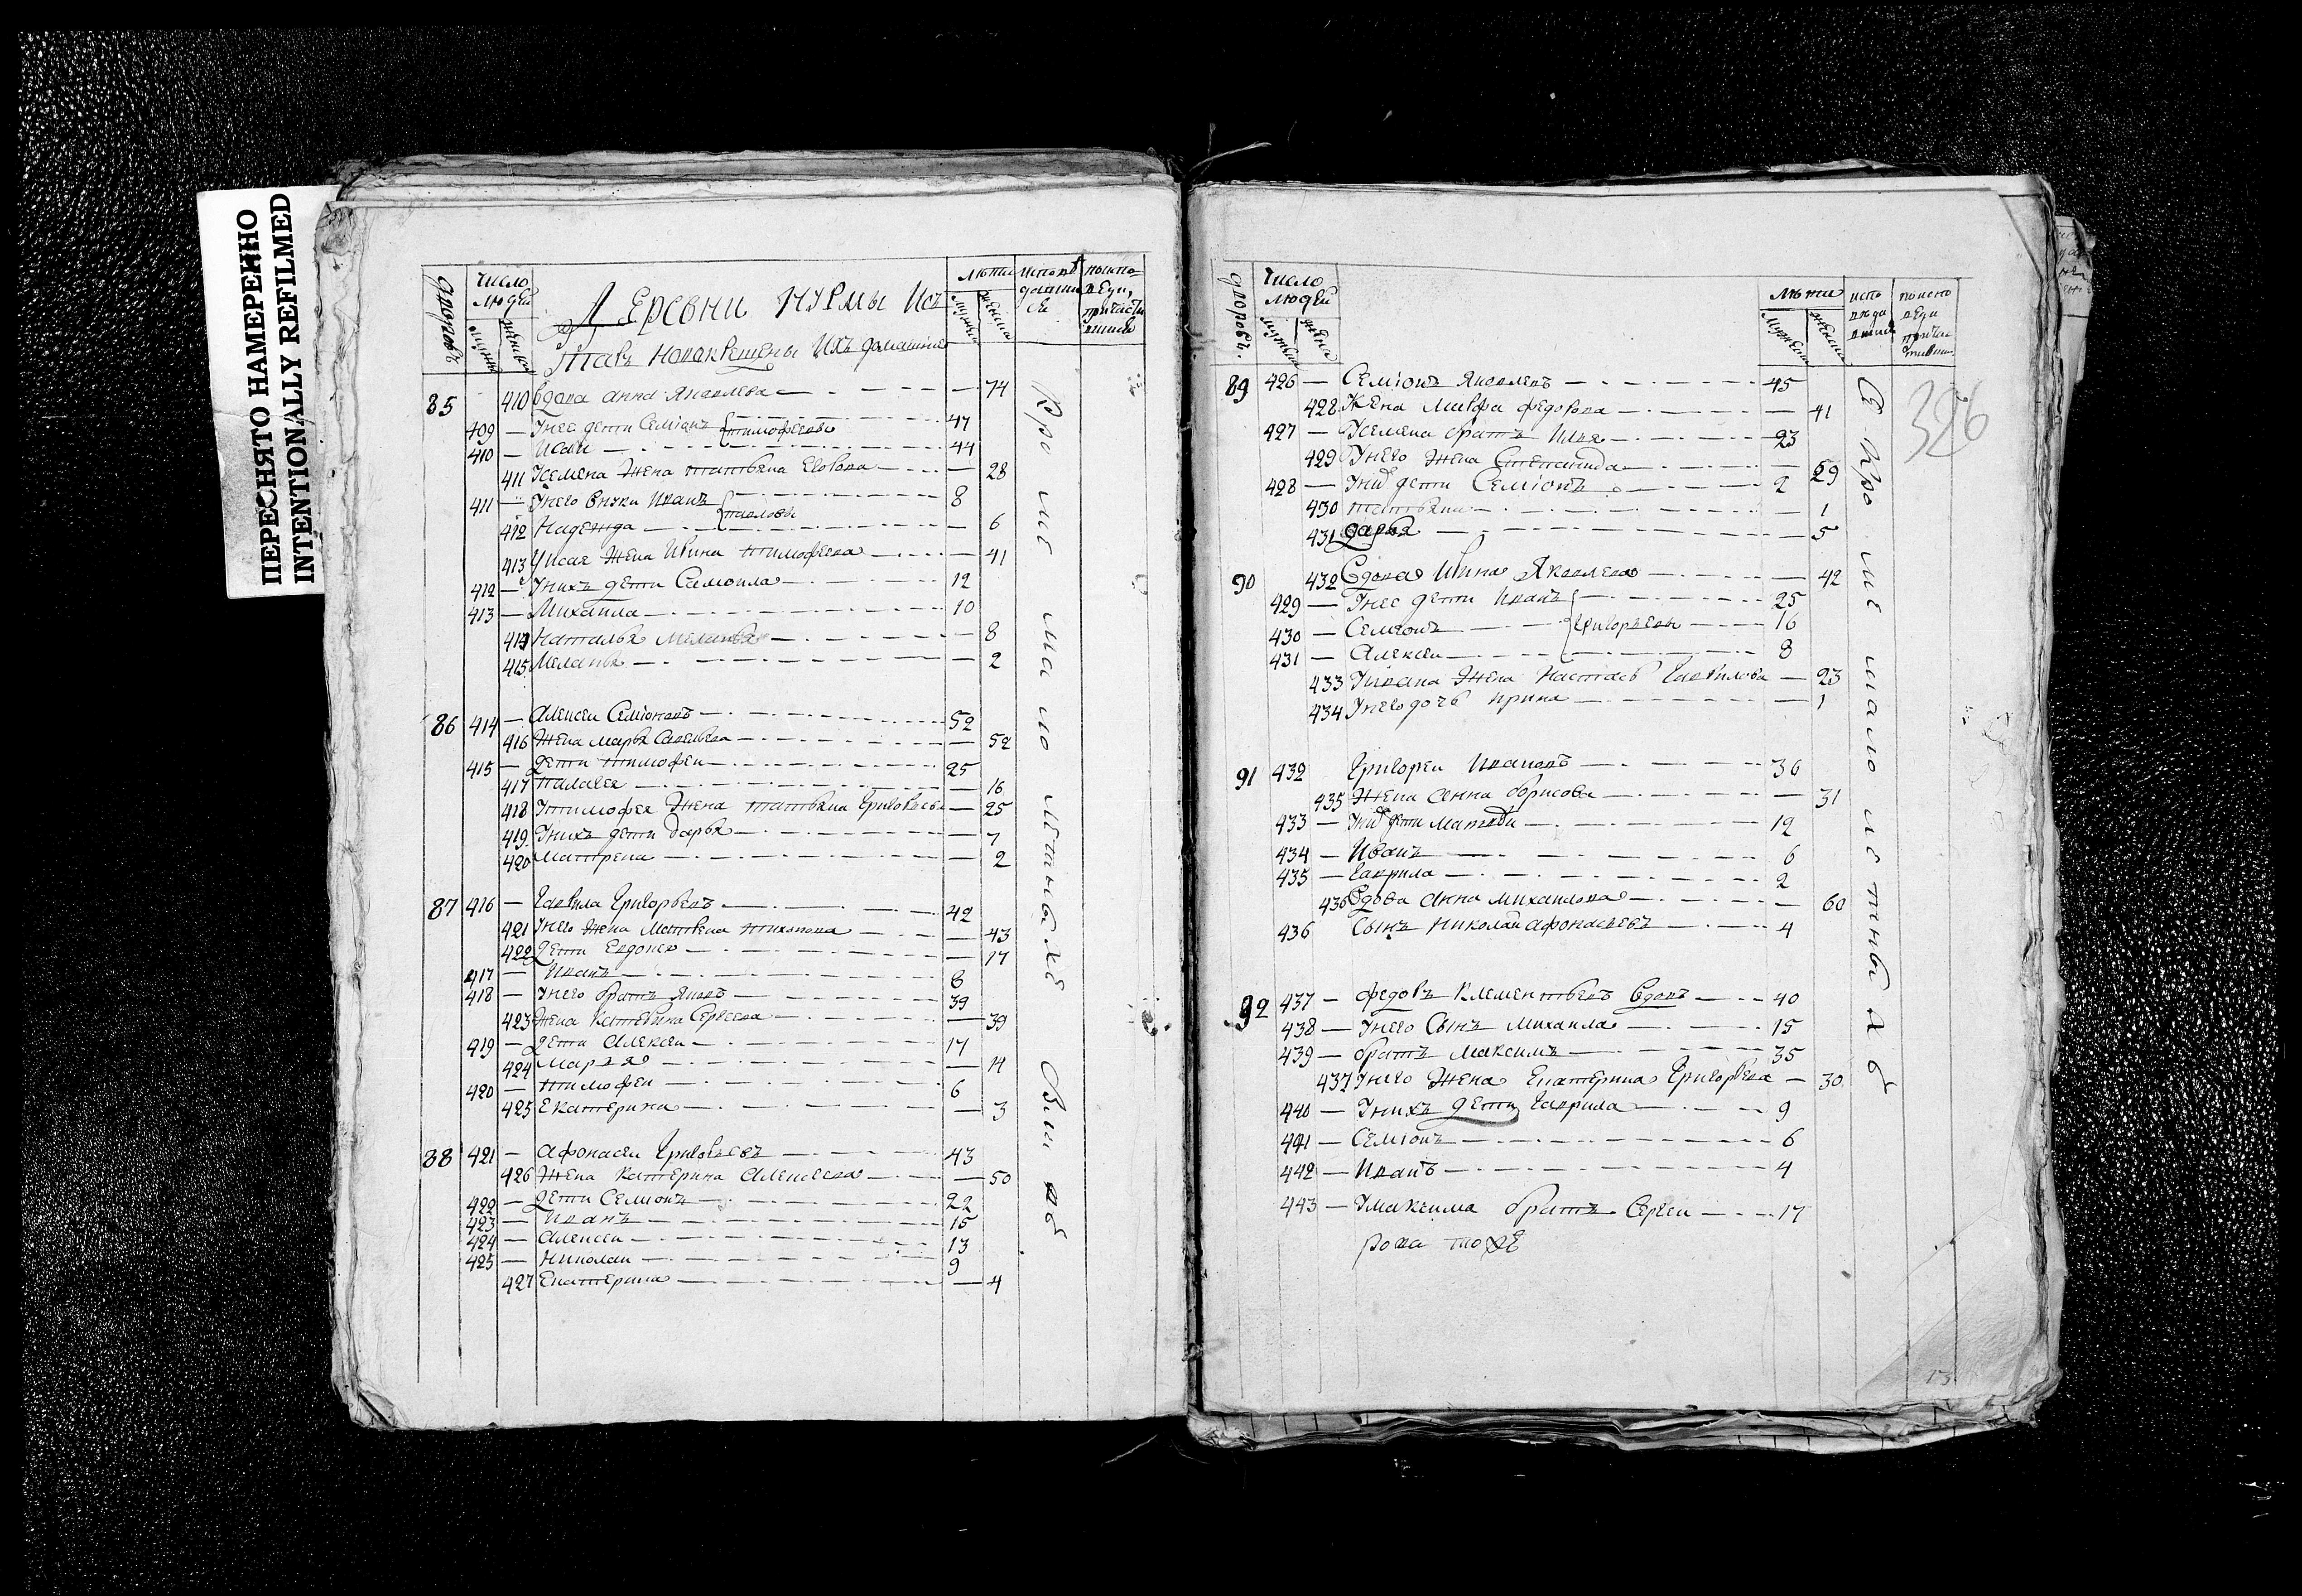 ПЕРЕСНЯТО НАМЕРЕННО
INTENTIONALLY REFILMED
дворовъ
число людей
мужеска
женска
Деревни Нурмы Ис
тавъ новокрещены Ихъ домашние
лѣта
85 410 Вдова анна Яковлева — 74
409 — Унее дети Семіонъ тимофеевы 47
410 — Исаи — 44
411 Усемена Жена татьяна — 28
411 — Унего внуки Иванъ павловы 8
412 Надежда — 6
413 Уисая Жена Ирина тимофеева — 41
412 — Унихъ дети Самоила — 12
413 — Михаила — 10
414 Наталья — 8
415 Меланья — 2
86 414 — Алексеи Семіоновъ — 52
416 Жена марья Савельева — 52
415 — дети тимофеи — 25
417 палагея — 16
418 Утимофея Жена татьяна Григорьева — 25
419 Унихъ дети дарья — 7
420 матрена — 2
87 416 — Гаврила Григорьевъ — 42
421 Унего Жена Матрена тихонова — 43
422 дети Евдокея — 17
417 — Иванъ — 8
418 — Унего братъ Яковъ — 39
423 Жена Катерина Сергеева — 39
419 — дети Алексеи — 17
424 марья — 14
420 — тимофеи — 6
425 Екатерина — 3
88 421 — афонасеи Григорьевъ — 43
426 Жена Катерина Алексеева — 50
422 — дети Семионъ — 22
423 — Иванъ — 15
424 — алексеи — 13
425 — николаи — 9
427 Екатерина — 4
дворовъ.
число людей
лѣта
326
89 426 — Семіонъ Яковлевъ — 45
428 Жена Мавра федорова — 41
427 — Усемена братъ Илья — 23
429 Унего Жена Степанида — 29
428 — Унихъ дети Семіонъ — 2
430 татьяна — 1
431 дарья — 5
90 432 Вдова Ирина Яковлева — 42
429 — Унее дети Иванъ 25
430 — Семеонъ Григорьевы 16
431 — Алексеи 8
433 Уивана Жена Настасья Гаврилова — 23
434 Унего дочь ирина — 1
91 432 Григореи Ивановъ — 36
435 Жена Анна борисова — 31
433 — Унихъ дети Матвеи — 12
434 — Иванъ — 6
435 — Гаврила — 2
436 Вдова Анна михаилова — 60
436 Сынъ николаи афонасьевъ — 4
92 437 — федоръ Клементьевъ вдовъ — 40
438 — Унего Сынъ михаила — 15
439 — братъ максимъ — 35
437 Унего Жена Екатерина Григорьева — 30
440 — Унихъ дети Гаврила — 9
441 — Семіонъ — 6
442 — Иванъ — 4
443 — Умаксима братъ Сергеи — 17